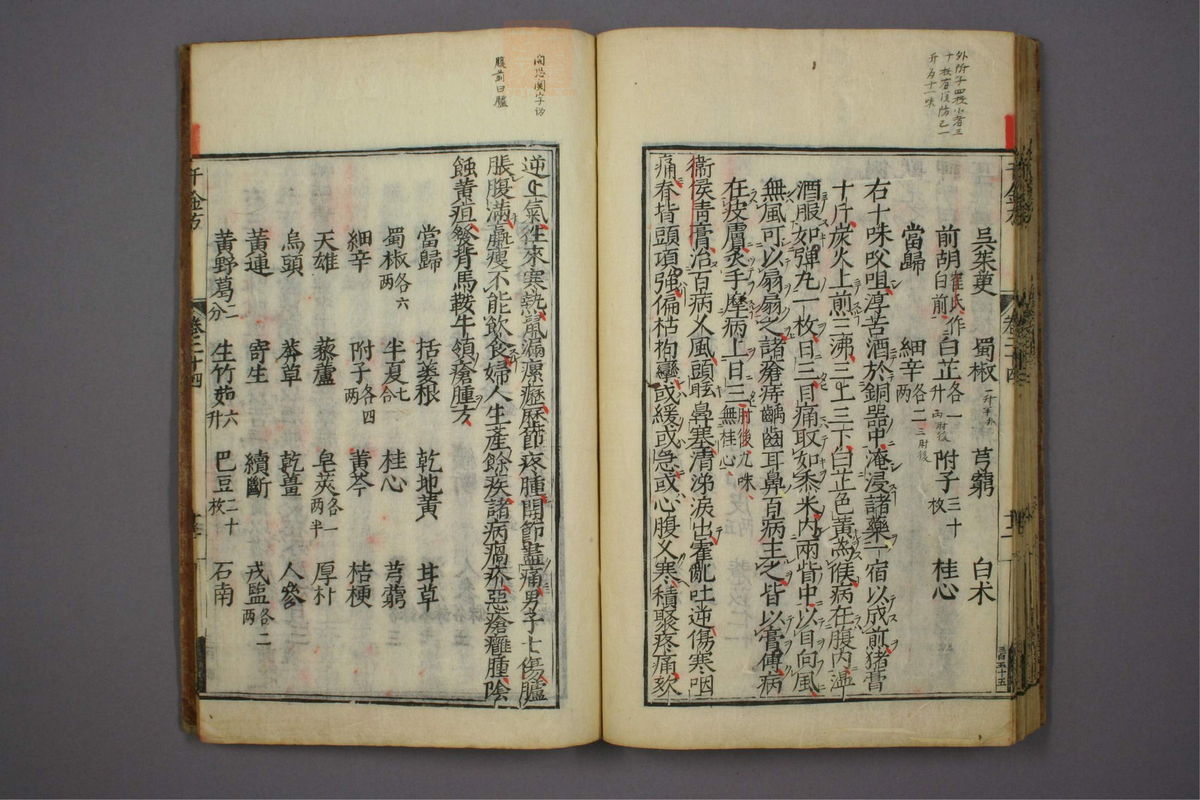 外附子四枚小者三
十枚者復防己一
升為十一味
千金方
卷二十四
吳茱萸 蜀椒 芎藭 白朮
前胡崔氏作白前 白芷各一升 附子三十枚 桂心
當歸 細辛各二兩
右十味㕮咀淳苦酒於銅器中淹浸諸藥一宿以成煎猪膏
十斤炭火上煎三沸三上三下白芷色黃為候病在腹內溫
酒服如彈丸一枚日三目痛取如黍米內兩眥中以目向風
無風可以扇扇之諸瘡痔齲齒耳鼻百病主之皆以膏傅病
在皮膚炙手摩病上日三肘後九味無桂心
衞侯青膏治百病久風頭眩鼻塞清涕淚出霍亂吐逆傷寒咽
痛脊背頭項強偏枯拘攣或緩或急或心腹久寒積聚疼痛欬
三百五十五
腹前曰臚
逆上氣往來寒熱鼠漏瘰癧歷節疼腫關節盡痛男子七傷臚
脹腹滿羸瘦不能飲食婦人生產餘疾諸病瘑疥惡瘡癰腫陰
蝕黃疸發背馬鞍牛領瘡腫方
當歸 栝蔞根 乾地黃 甘草
蜀椒各六兩 半夏七合 桂心 芎藭
細辛 附子各四兩 黃芩 桔梗
天雄 藜蘆 皂莢各一兩半 厚朴
烏頭 莽草 乾薑 人參
黃連 寄生 續斷 戎鹽各二兩
黃野葛二分 生竹茹六升 巴豆二十枚 石南
千金方
卷二十四